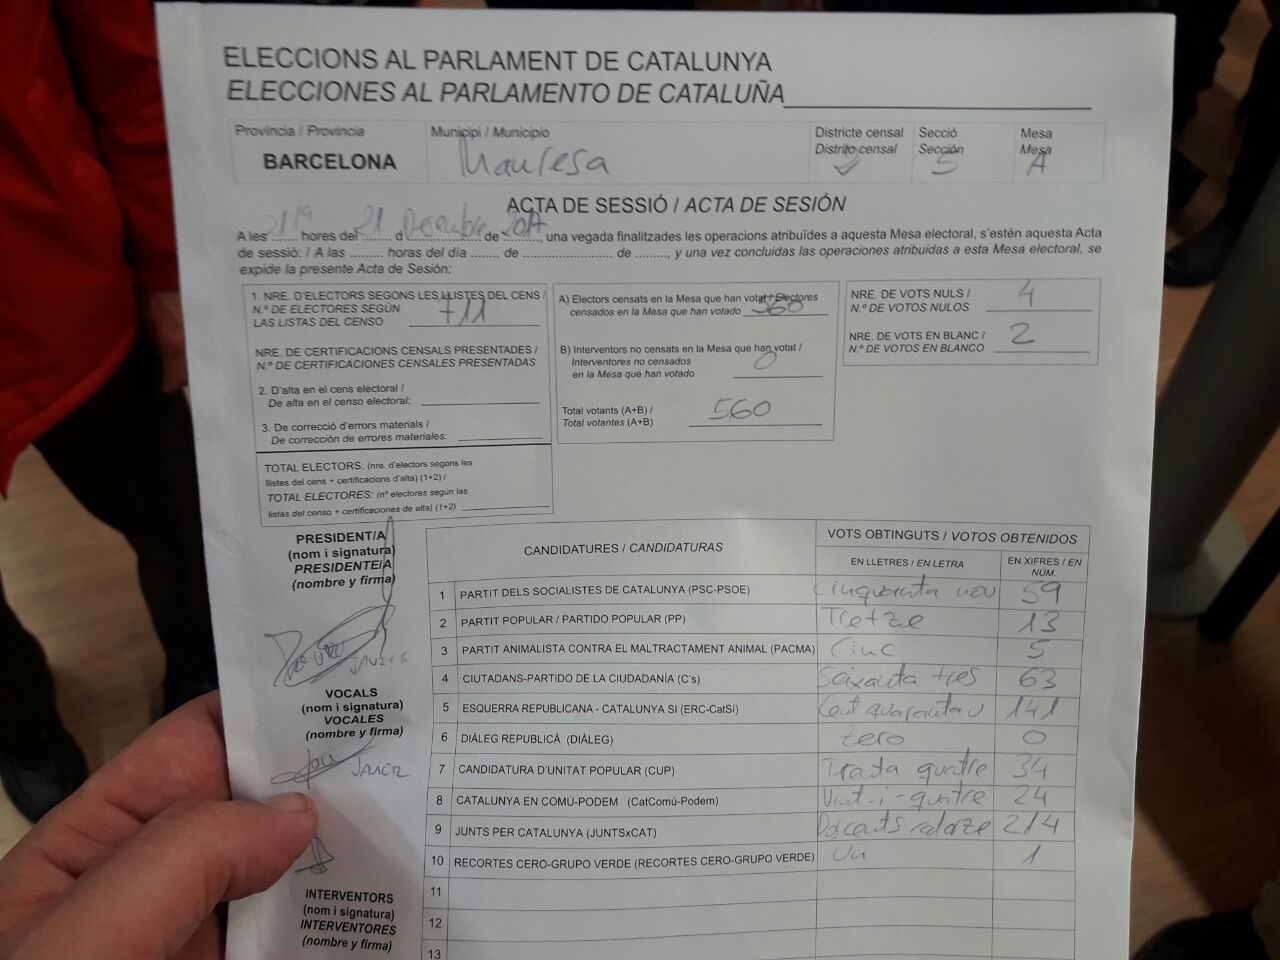 ELECCIONS AL PARLAMENT DE CATALUNYA
ELECCIONES AL PARLAMENTO DE CATALUÑA
Provincia / Provincia
BARCELONA
Municipi / Municipio
Manresa
Districte censal
Distrito censal
Secció
Sección
5
Mesa
Mesa
A
ACTA DE SESSIÓ / ACTA DE SESIÓN
A les 21'19 hores del 21 d Desembre de 2017, una vegada finalitzades les operacions atribuïdes a aquesta Mesa electoral, s'estén aquesta Acta
de sessió: / A las ......... horas del día ....... de ....................... de ........, y una vez concluidas las operaciones atribuidas a esta Mesa electoral, se
expide la presente Acta de Sesión:
1. NRE. D'ELECTORS SEGONS LES LLISTES DEL CENS /
N.º DE ELECTORES SEGÚN
LAS LISTAS DEL CENSO 711
NRE. DE CERTIFICACIONS CENSALS PRESENTADES /
N.º DE CERTIFICACIONES CENSALES PRESENTADAS
2. D'alta en el cens electoral /
De alta en el censo electoral:
3. De correcció d'errors materials /
De corrección de errores materiales:
TOTAL ELECTORS: (nre. d'electors segons les
llistes del cens + certificacions d'alta) (1+2) /
TOTAL ELECTORES: (nº electores según las
listas del censo + certificaciones de alta) (1+2)
A) Electors censats en la Mesa que han votat / Electores
censados en la Mesa que han votado 560
B) Interventors no censats en la Mesa que han votat /
Interventores no censados
en la Mesa que han votado 0
Total votants (A+B) /
Total votantes (A+B) 560
NRE. DE VOTS NULS /
N.º DE VOTOS NULOS 4
NRE. DE VOTS EN BLANC /
N.º DE VOTOS EN BLANCO 2
PRESIDENT/A
(nom i signatura)
PRESIDENTE/A
(nombre y firma)
JAVIER
VOCALS
(nom i signatura)
VOCALES
(nombre y firma)
JAVIER
INTERVENTORS
(nom i signatura)
INTERVENTORES
(nombre y firma)
CANDIDATURES / CANDIDATURAS
VOTS OBTINGUTS / VOTOS OBTENIDOS
EN LLETRES / EN LETRA
EN XIFRES / EN
NÚM.
1 PARTIT DELS SOCIALISTES DE CATALUNYA (PSC-PSOE) Cinquanta nou 59
2 PARTIT POPULAR / PARTIDO POPULAR (PP) Tretze 13
3 PARTIT ANIMALISTA CONTRA EL MALTRACTAMENT ANIMAL (PACMA) Cinc 5
4 CIUTADANS-PARTIDO DE LA CIUDADANÍA (C's) Seixanta tres 63
5 ESQUERRA REPUBLICANA - CATALUNYA SI (ERC-CatSí) Cent quaranta u 141
6 DIÀLEG REPUBLICÀ (DIÀLEG) Zero 0
7 CANDIDATURA D'UNITAT POPULAR (CUP) Trenta quatre 34
8 CATALUNYA EN COMÚ-PODEM (CatComú-Podem) Vint-i-quatre 24
9 JUNTS PER CATALUNYA (JUNTSxCAT) Doscents catorze 214
10 RECORTES CERO-GRUPO VERDE (RECORTES CERO-GRUPO VERDE) Un 1
11
12
13